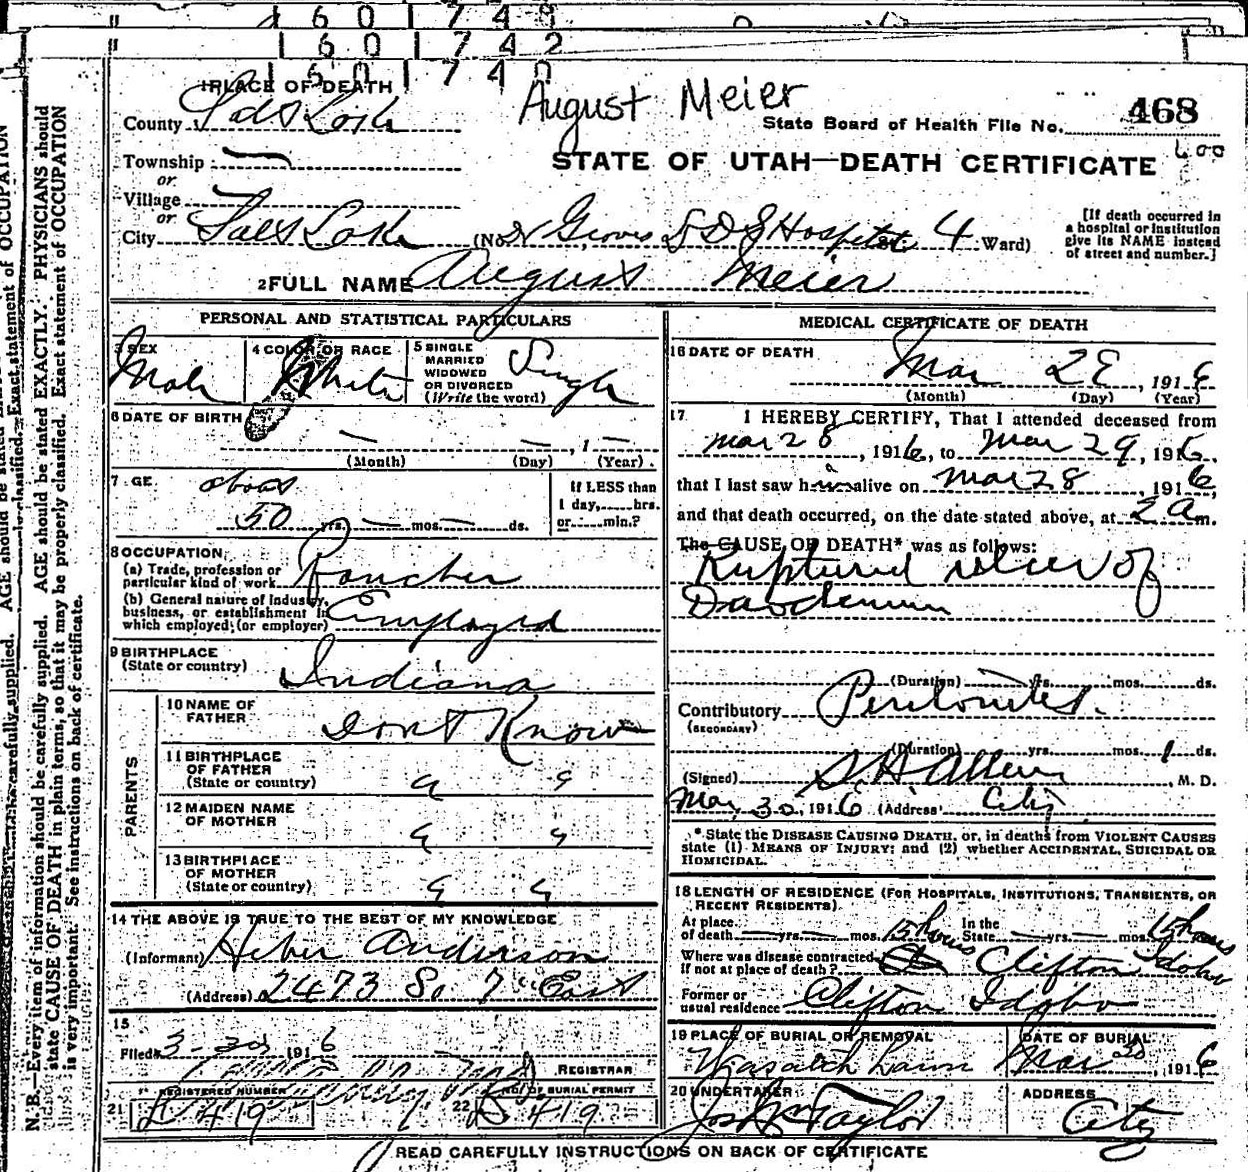 1 6 0 1 7 4 8
1 6 0 1 7 4 2
1 6 0 1 7 4 0
1 PLACE OF DEATH
August Meier
County Salt Lake
State Board of Health File No. 468
600
Township
or
STATE OF UTAH—DEATH CERTIFICATE
Village
or
City Salt Lake (No. Dr Groves L D S Hospital St. 4 Ward)
[If death occurred in
a hospital or institution
give its NAME instead
of street and number.]
2 FULL NAME August Meier
PERSONAL AND STATISTICAL PARTICULARS
3 SEX Male
4 COLOR OR RACE White
5 SINGLE
MARRIED
WIDOWED
OR DIVORCED
(Write the word)
Single
6 DATE OF BIRTH
— — , 1 —
(Month) (Day) (Year)
7 GE. about
50 yrs. — mos. — ds.
If LESS than
1 day,......hrs.
or......min.?
8 OCCUPATION
(a) Trade, profession or
particular kind of work Rancher
(b) General nature of industry,
business, or establishment in
which employed (or employer) Employed
9 BIRTHPLACE
(State or country) Indiana
PARENTS
10 NAME OF
FATHER Dont Know
11 BIRTHPLACE
OF FATHER
(State or country) " "
12 MAIDEN NAME
OF MOTHER " "
13 BIRTHPLACE
OF MOTHER
(State or country) " "
14 THE ABOVE IS TRUE TO THE BEST OF MY KNOWLEDGE
(Informant) Heber Anderson
(Address) 2473 So 7" East
15
Filed 3-30, 1916
REGISTRAR
REGISTERED NUMBER
21 419
NO. OF BURIAL PERMIT
22 419
MEDICAL CERTIFICATE OF DEATH
16 DATE OF DEATH
Mar 28, 1916
(Month) (Day) (Year)
17 I HEREBY CERTIFY, That I attended deceased from
Mar 28, 1916, to Mar 29, 1916
that I last saw him alive on Mar 28, 1916,
and that death occurred, on the date stated above, at 2 a m.
The CAUSE OF DEATH* was as follows:
Ruptured ulcer of
Duodenum
(Duration) yrs. mos. ds.
Contributory Peritonitis.
(SECONDARY)
(Duration) yrs. mos. 1 ds.
(Signed) S. H. Allen, M. D.
Mar. 30, 1916 (Address) City
* State the DISEASE CAUSING DEATH, or, in deaths from VIOLENT CAUSES
state (1) MEANS OF INJURY; and (2) whether ACCIDENTAL, SUICIDAL OR
HOMICIDAL.
18 LENGTH OF RESIDENCE (FOR HOSPITALS, INSTITUTIONS, TRANSIENTS, OR
RECENT RESIDENTS).
At place
of death — yrs. — mos. 15 hours
In the
State — yrs. — mos. 15 hours
Where was disease contracted
if not at place of death? Clifton Idaho
Former or
usual residence Clifton Idaho
19 PLACE OF BURIAL OR REMOVAL
Wasatch Lawn
DATE OF BURIAL
Mar 30, 1916
20 UNDERTAKER
Jos Wm Taylor
ADDRESS
City
READ CAREFULLY INSTRUCTIONS ON BACK OF CERTIFICATE
N. B.—Every item of information should be carefully supplied. AGE should be stated EXACTLY. PHYSICIANS should
state CAUSE OF DEATH in plain terms, so that it may be properly classified. Exact statement of OCCUPATION
is very important. See instructions on back of certificate.